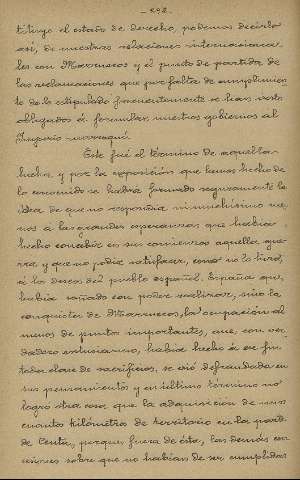 - 292 -
tituye el estado de derecho, podemos decirlo
así, de nuestras relaciones internaciona-
les con Marruecos y el punto de partida de
las reclamaciones que por falta de cumplimien-
to de lo estipulado frecuentemente se han visto
obligados á formular nuestros gobiernos al
Imperio marroquí.
Este fué el término de aquella
lucha, y por la exposición que hemos hecho de
lo convenido se habrá formado seguramente la
idea de que no respondía ni muchísimo me-
nos á las grandes esperanzas que había
hecho concebir en sus comienzos aquella gue-
rra y que no podía satisfacer, como no lo hizo,
á los deseos del pueblo español. España que
había soñado con poder realizar, sino la
conquista de Marruecos, la ocupación al
menos de puntos importantes, que con ver-
dadero entusiasmo, había hecho á ese fin
toda clase de sacrificios, se vió defraudada en
sus pensamientos y en último término no
logró otra cosa que la adquisición de unos
cuantos kilómetros de territorio en la parte
de Ceuta, porque fuera de ésto, las demás con-
cesiones sobre que no habían de ser cumplidas